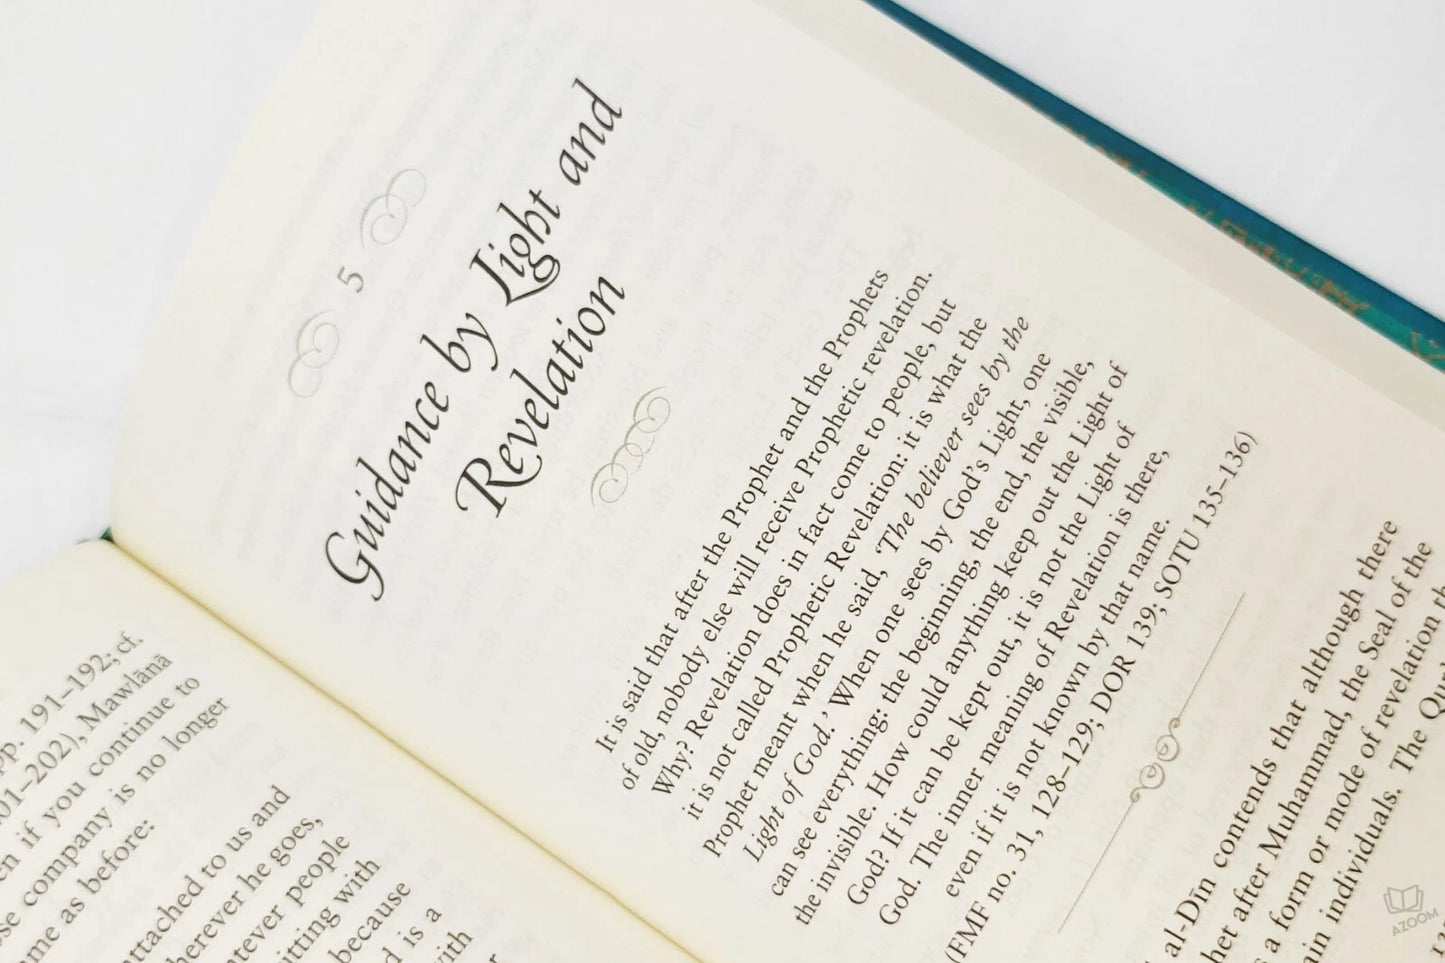 pp. 191–192; cf.
01–202), Mawlānā
en if you continue to
se company is no longer
me as before:
attached to us and
herever he goes,
atever people
itting with
because
d is a
with
5
Guidance by Light and
Revelation
It is said that after the Prophet and the Prophets
of old, nobody else will receive Prophetic revelation.
Why? Revelation does in fact come to people, but
it is not called Prophetic Revelation: it is what the
Prophet meant when he said, ‘The believer sees by the
Light of God.’ When one sees by God’s Light, one
can see everything: the beginning, the end, the visible,
the invisible. How could anything keep out the Light of
God? If it can be kept out, it is not the Light of
God. The inner meaning of Revelation is there,
even if it is not known by that name.
(FMF no. 31, 128–129; DOR 139; SOTU 135–136)
al-Dīn contends that although there
het after Muhammad, the Seal of the
s a form or mode of revelation th
ain individuals. The Qur
AZOOM